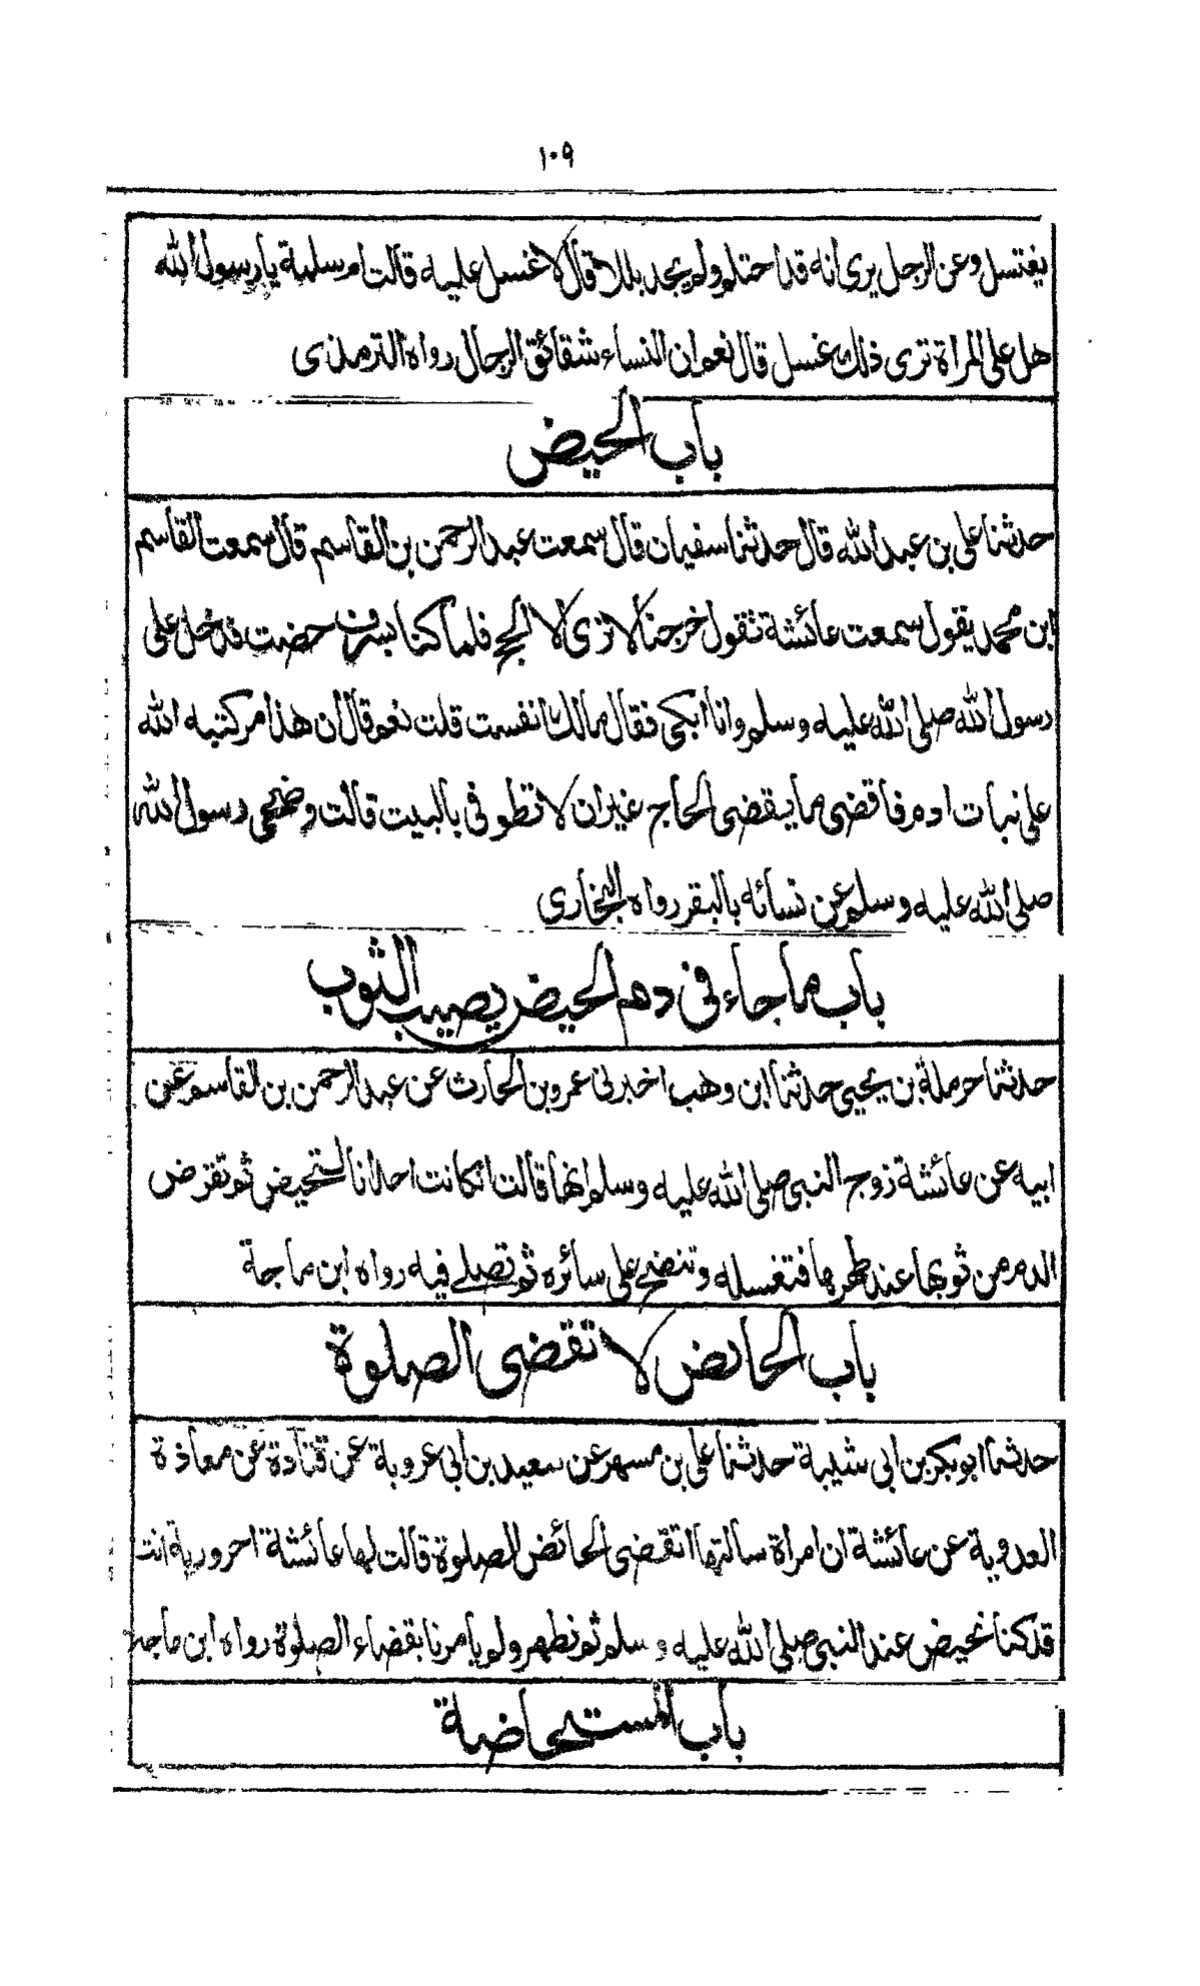 ١٠٩
يغتسل وعن الرجل يرى انه قد احتلم ولم يجد بللا قال لا غسل عليه قالت ام سلمة يا رسول الله
هل على المراة ترى ذلك غسل قال نعم ان النساء شقائق الرجال رواه الترمذى
باب الحيض
حدثنا على بن عبد الله قال حدثنا سفيان قال سمعت عبد الرحمن بن القاسم قال سمعت القاسم
ابن محمد يقول سمعت عائشة تقول خرجنا لا نرى الا الحج فلما كنا بسرف حضت فدخل على
رسول الله صلى الله عليه وسلم وانا ابكى فقال مالك انفست قلت نعم قال ان هذا امر كتبه الله
على نبات ادم فاقضى ما يقضى الحاج غيران لا تطوفى بالبيت قالت وضحى رسول الله
صلى الله عليه وسلم عن نسائه بالبقر رواه البخارى
باب ما جاء فى دم الحيض يصيب الثوب
حدثنا حرملة بن يحيى حدثنا ابن وهب اخبرنى عمرو بن الحارث عن عبد الرحمن بن القاسم عن
ابيه عن عائشة زوج النبى صلى الله عليه وسلم انها قالت ان كانت احدانا لتحيض ثم تقرض
الدم من ثوبها عند طهرها فتغسله وتنضح على سائره ثم تصلى فيه رواه ابن ماجة
باب الحائض لا تقضى الصلوة
حدثنا ابو بكر بن ابى شيبة حدثنا على بن مسهر عن سعيد بن ابى عروبة عن قتادة عن معاذة
العدوية عن عائشة ان امراة سالتها اتقضى الحائض الصلوة قالت لها عائشة احرورية انت
قد كنا نحيض عند النبى صلى الله عليه وسلم ثم نطهر ولم يأمرنا بقضاء الصلوة رواه ابن ماجة
باب المستحاضة